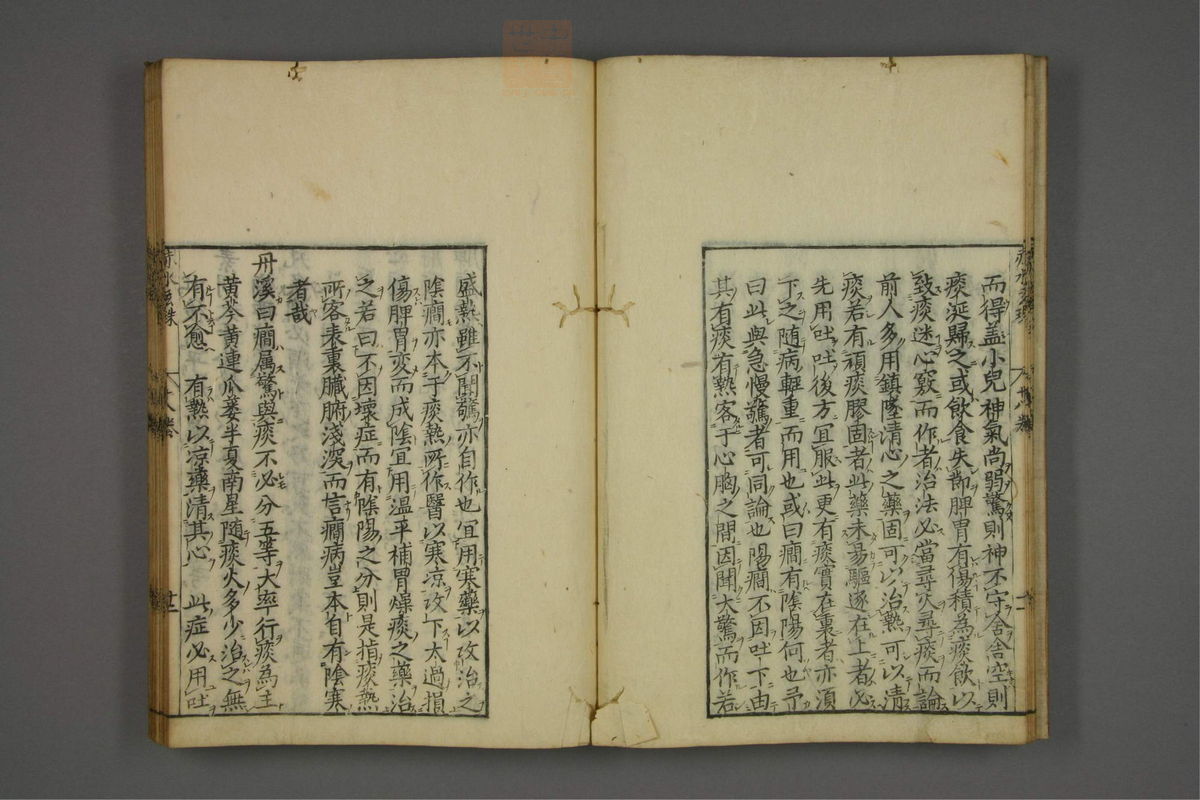 而得盖小兒神氣尚弱驚則神不守舍舍空則
痰涎歸之或飲食失節脾胃有傷積為痰飲以
致痰迷心竅而作者治法必當尋火尋痰而論
前人多用鎮墜清心之藥固可以治熱可以清
痰若有頑痰膠固者此藥未易驅逐在上者必
先用吐吐後方宜服此更有痰實在裏者亦須
下之随病輕重而用也或曰癇有陰陽何也予
曰此與急慢驚者可同論也陽癇不因吐下由
其有痰有熱客于心胸之間因聞大驚而作若
盛熱雖不聞驚亦自作也宜用寒藥以攻治之
陰癇亦本于痰熱所作醫以寒凉攻下太過損
傷脾胃变而成陰宜用温平補胃燥痰之藥治
之若曰不因壞症而有陰陽之分則是指痰熱
所客表裏臟腑淺深而言癇病豈本自有陰寒
者哉
丹溪曰癇属驚與痰不必分五等大率行痰為主
黄芩黄連瓜蔞半夏南星随痰火多少治之無
有不愈 有熱以凉藥清其心 此症必用吐